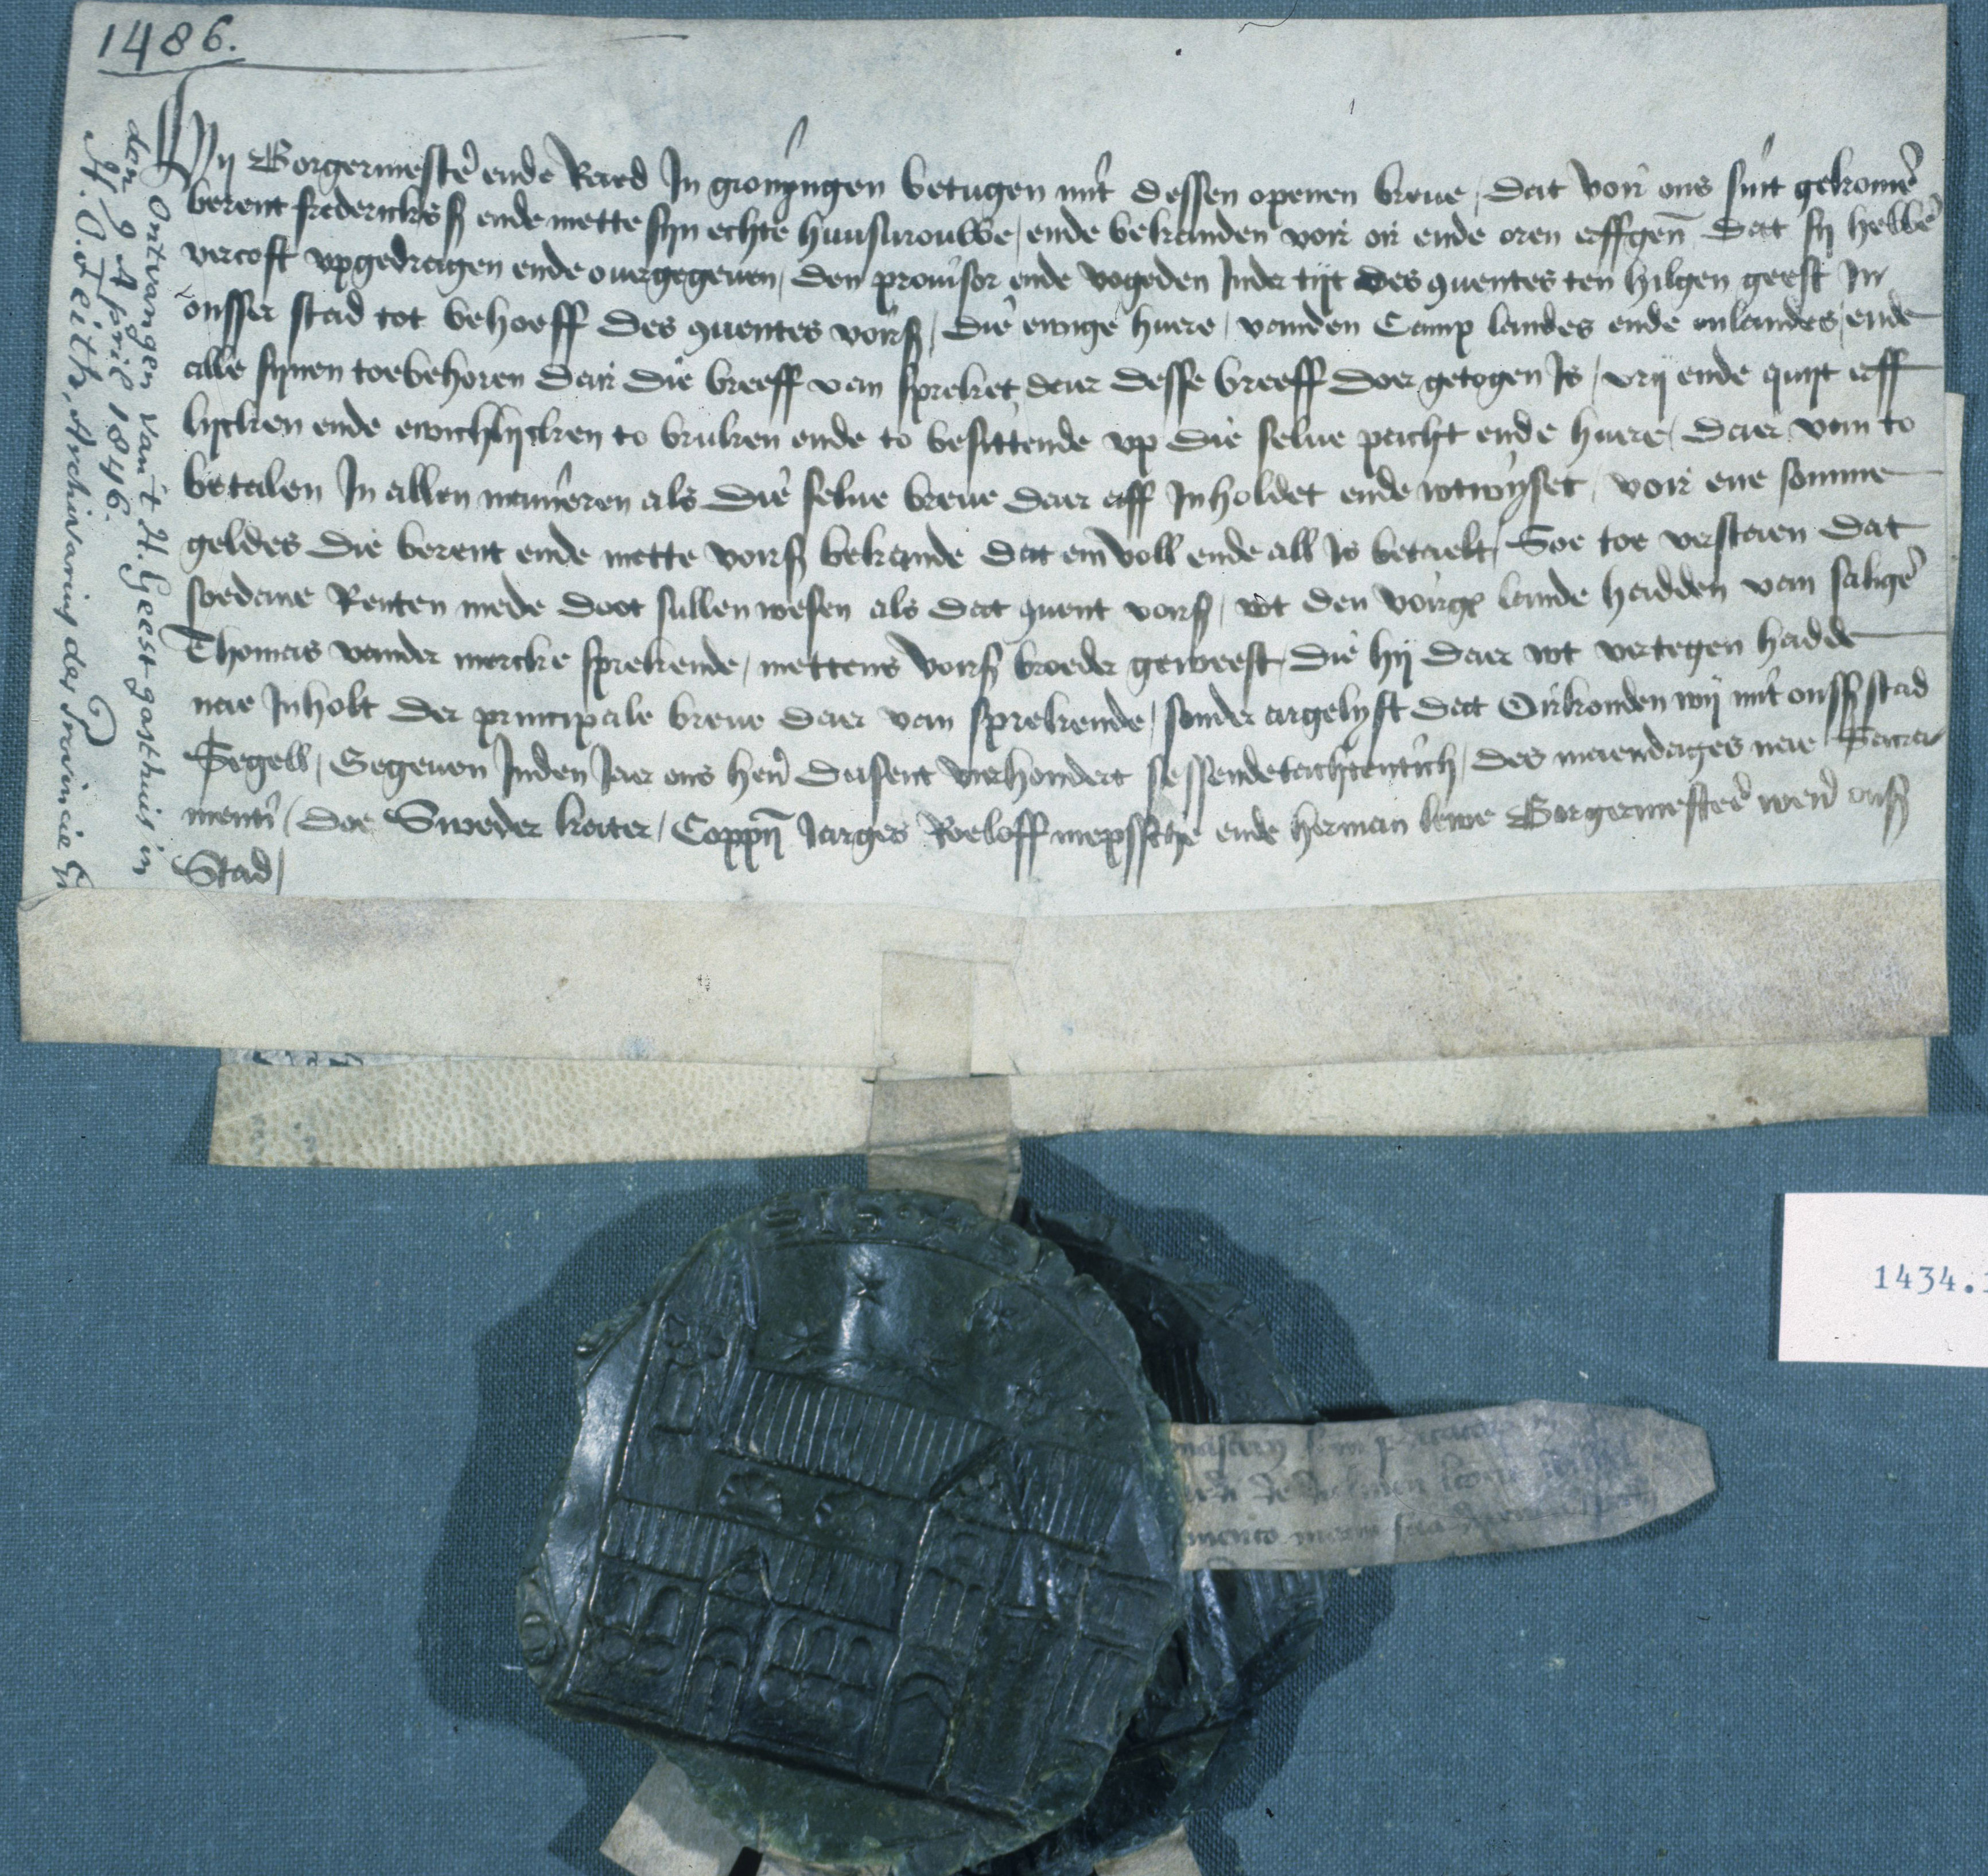 1486.
Wij Borgermestere ende Raed In gronyngen betugen mit dessen openen breue, dat voir ons sint gekomen
berent frederickss ende mette syn echte huusurouwe, ende bekanden voir oir ende oren erffgen dat sy hebben
vercoft vpgedragen ende ouergegeuen, den prouisor ende vogeden Inder tijt des 9uentes ten hilgen geest In
onsser stad tot behoeff des 9uentes voirs, die ewige huere, vanden Camp landes ende onlandes, ende
alle synen toebehoren dair die breeff van spreket daer desse breeff doer getogen Is, vrij ende quijt erff
lycken ende ewichlijcken to bruken ende to besittende vp die selue pacht ende huere, daer van to
betalen In allen manieren als die selue breue daer aff Inholdet ende wtwyset, voir ene somme
geldes die berent ende mette voirs bekande dat em voll ende all Is betaelt, Soe toe verstaen dat
soedane Renten mede doot sullen wesen als dat 9uent vors, wt den voirg lande hadden van saliger
Thomas vander mercke sprekende, mettens voirs broeder geweest, die hij daer wt vertegen hadde
nae Inholt der principale breue daer van sprekende, sonder argelyst dat Oirkonden wij mit onss stad
Segell, Gegeuen Inden Jaer ons hern dusent vierhondert sessendetachtentich, des maendages nae Sacra
menti, doe Sweder koiter, Coppyn Jarges Roeloff mepssche ende herman lewe Borgermestere weren onss
Stad,
Ontvangen van 't H. Geest gasthuis in
den 9 April 1846.
H. O. Feith, Archivarius der Provincie Gr
1434.